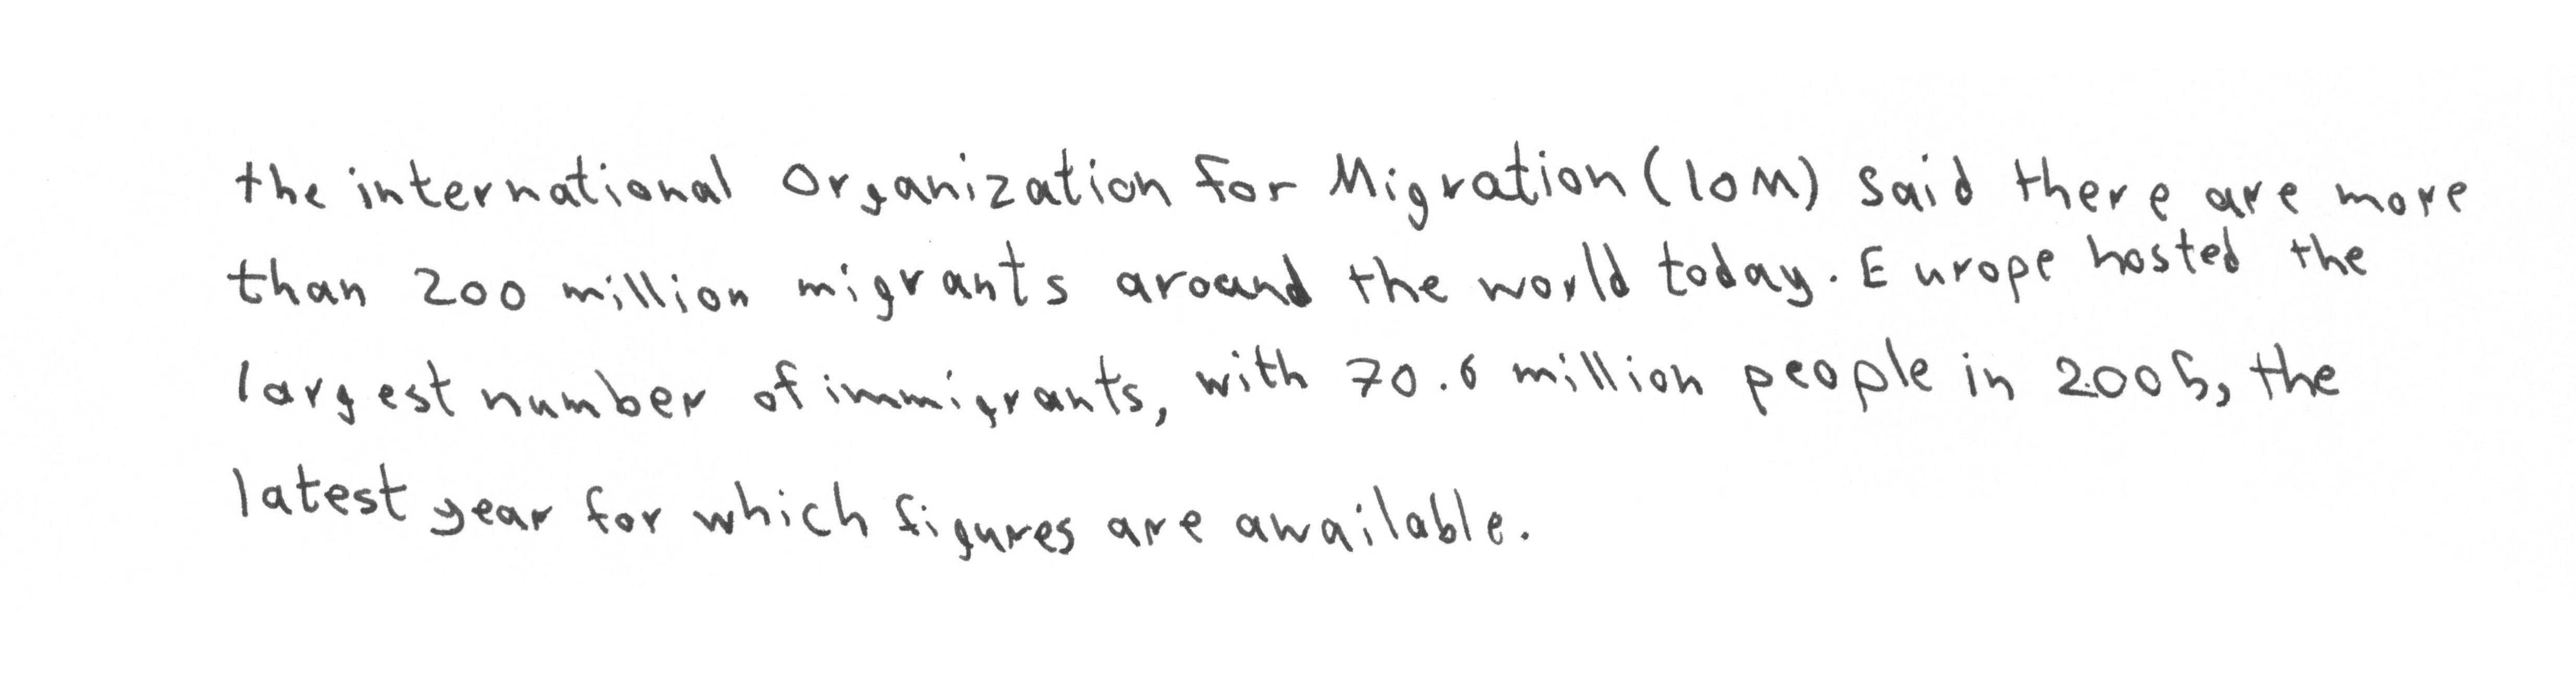 the international Organization for Migration (IOM) said there are more
than 200 million migrants around the world today. Europe hosted the
largest number of immigrants, with 70.6 million people in 2005, the
latest year for which figures are available.